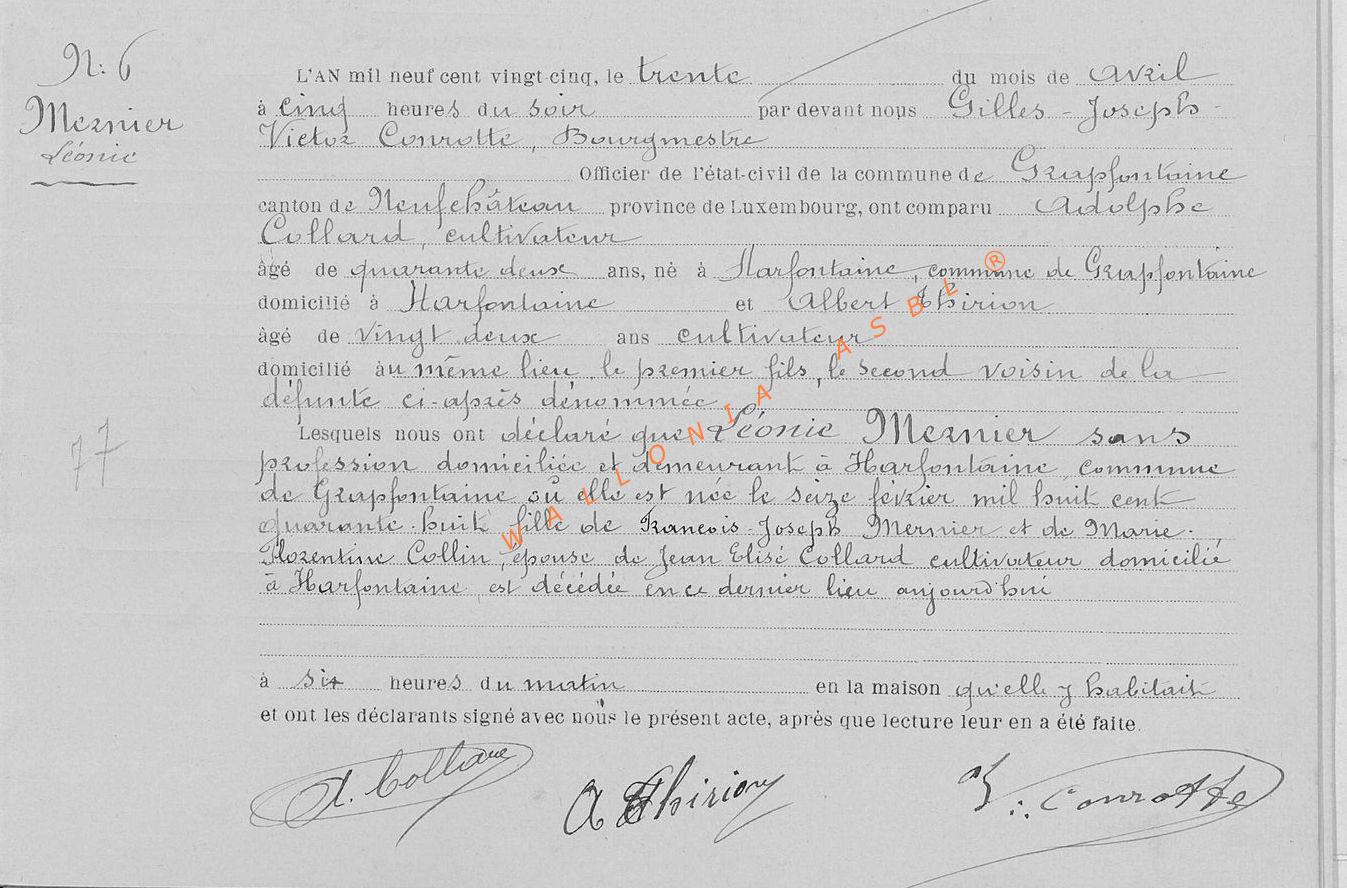 N: 6
Mernier
Léonie
L'AN mil neuf cent vingt-cinq, le trente du mois de avril
à cinq heures du soir par devant nous Gilles - Joseph -
Victor Conrotte, Bourgmestre
Officier de l'état-civil de la commune de Grapfontaine
canton de Neufchâteau province de Luxembourg, ont comparu Adolphe
Collard, cultivateur
âgé de quarante deux ans, né à Harfontaine, commune de Grapfontaine
domicilié à Harfontaine et Albert Thirion
âgé de vingt deux ans cultivateur
domicilié au même lieu, le premier fils, le second voisin de la
défunte ci-après dénommée
Lesquels nous ont déclaré que Léonie Mernier sans
profession domiciliée et demeurant à Harfontaine, commune
de Grapfontaine où elle est née le seize février mil huit cent
quarante-huit, fille de François-Joseph Mernier et de Marie-
Florentine Collin, épouse de Jean Elisé Collard cultivateur domicilié
à Harfontaine, est décédée en ce dernier lieu aujourd'hui
à six heures du matin en la maison qu'elle y habitait
et ont les déclarants signé avec nous le présent acte, après que lecture leur en a été faite.
77
A. Collard
A Thirion
V. Conrotte
WALLONIA ASBL ®